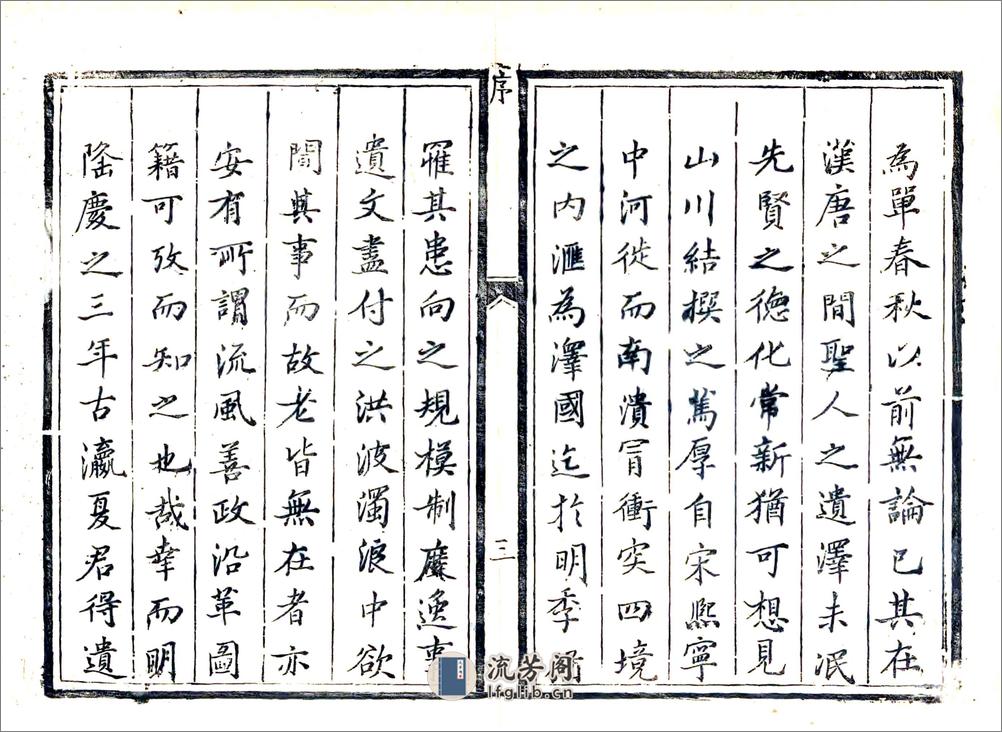 為單春秋以前無論已其在
漢唐之間聖人之遺澤未泯
先賢之德化常新猶可想見
山川結撰之篤厚自宋熈寧
中河徙而南潰冐衝突四境
之内滙為澤國迄於明季
序
三
罹其患向之規模制度逸事
遺文盡付之洪波濁浪中欲
聞其事而故老皆無在者亦
安有所謂流風善政沿革圖
籍可攷而知之也哉幸而明
隆慶之三年古瀛夏君得遺
流芳阁
lfglib.cn